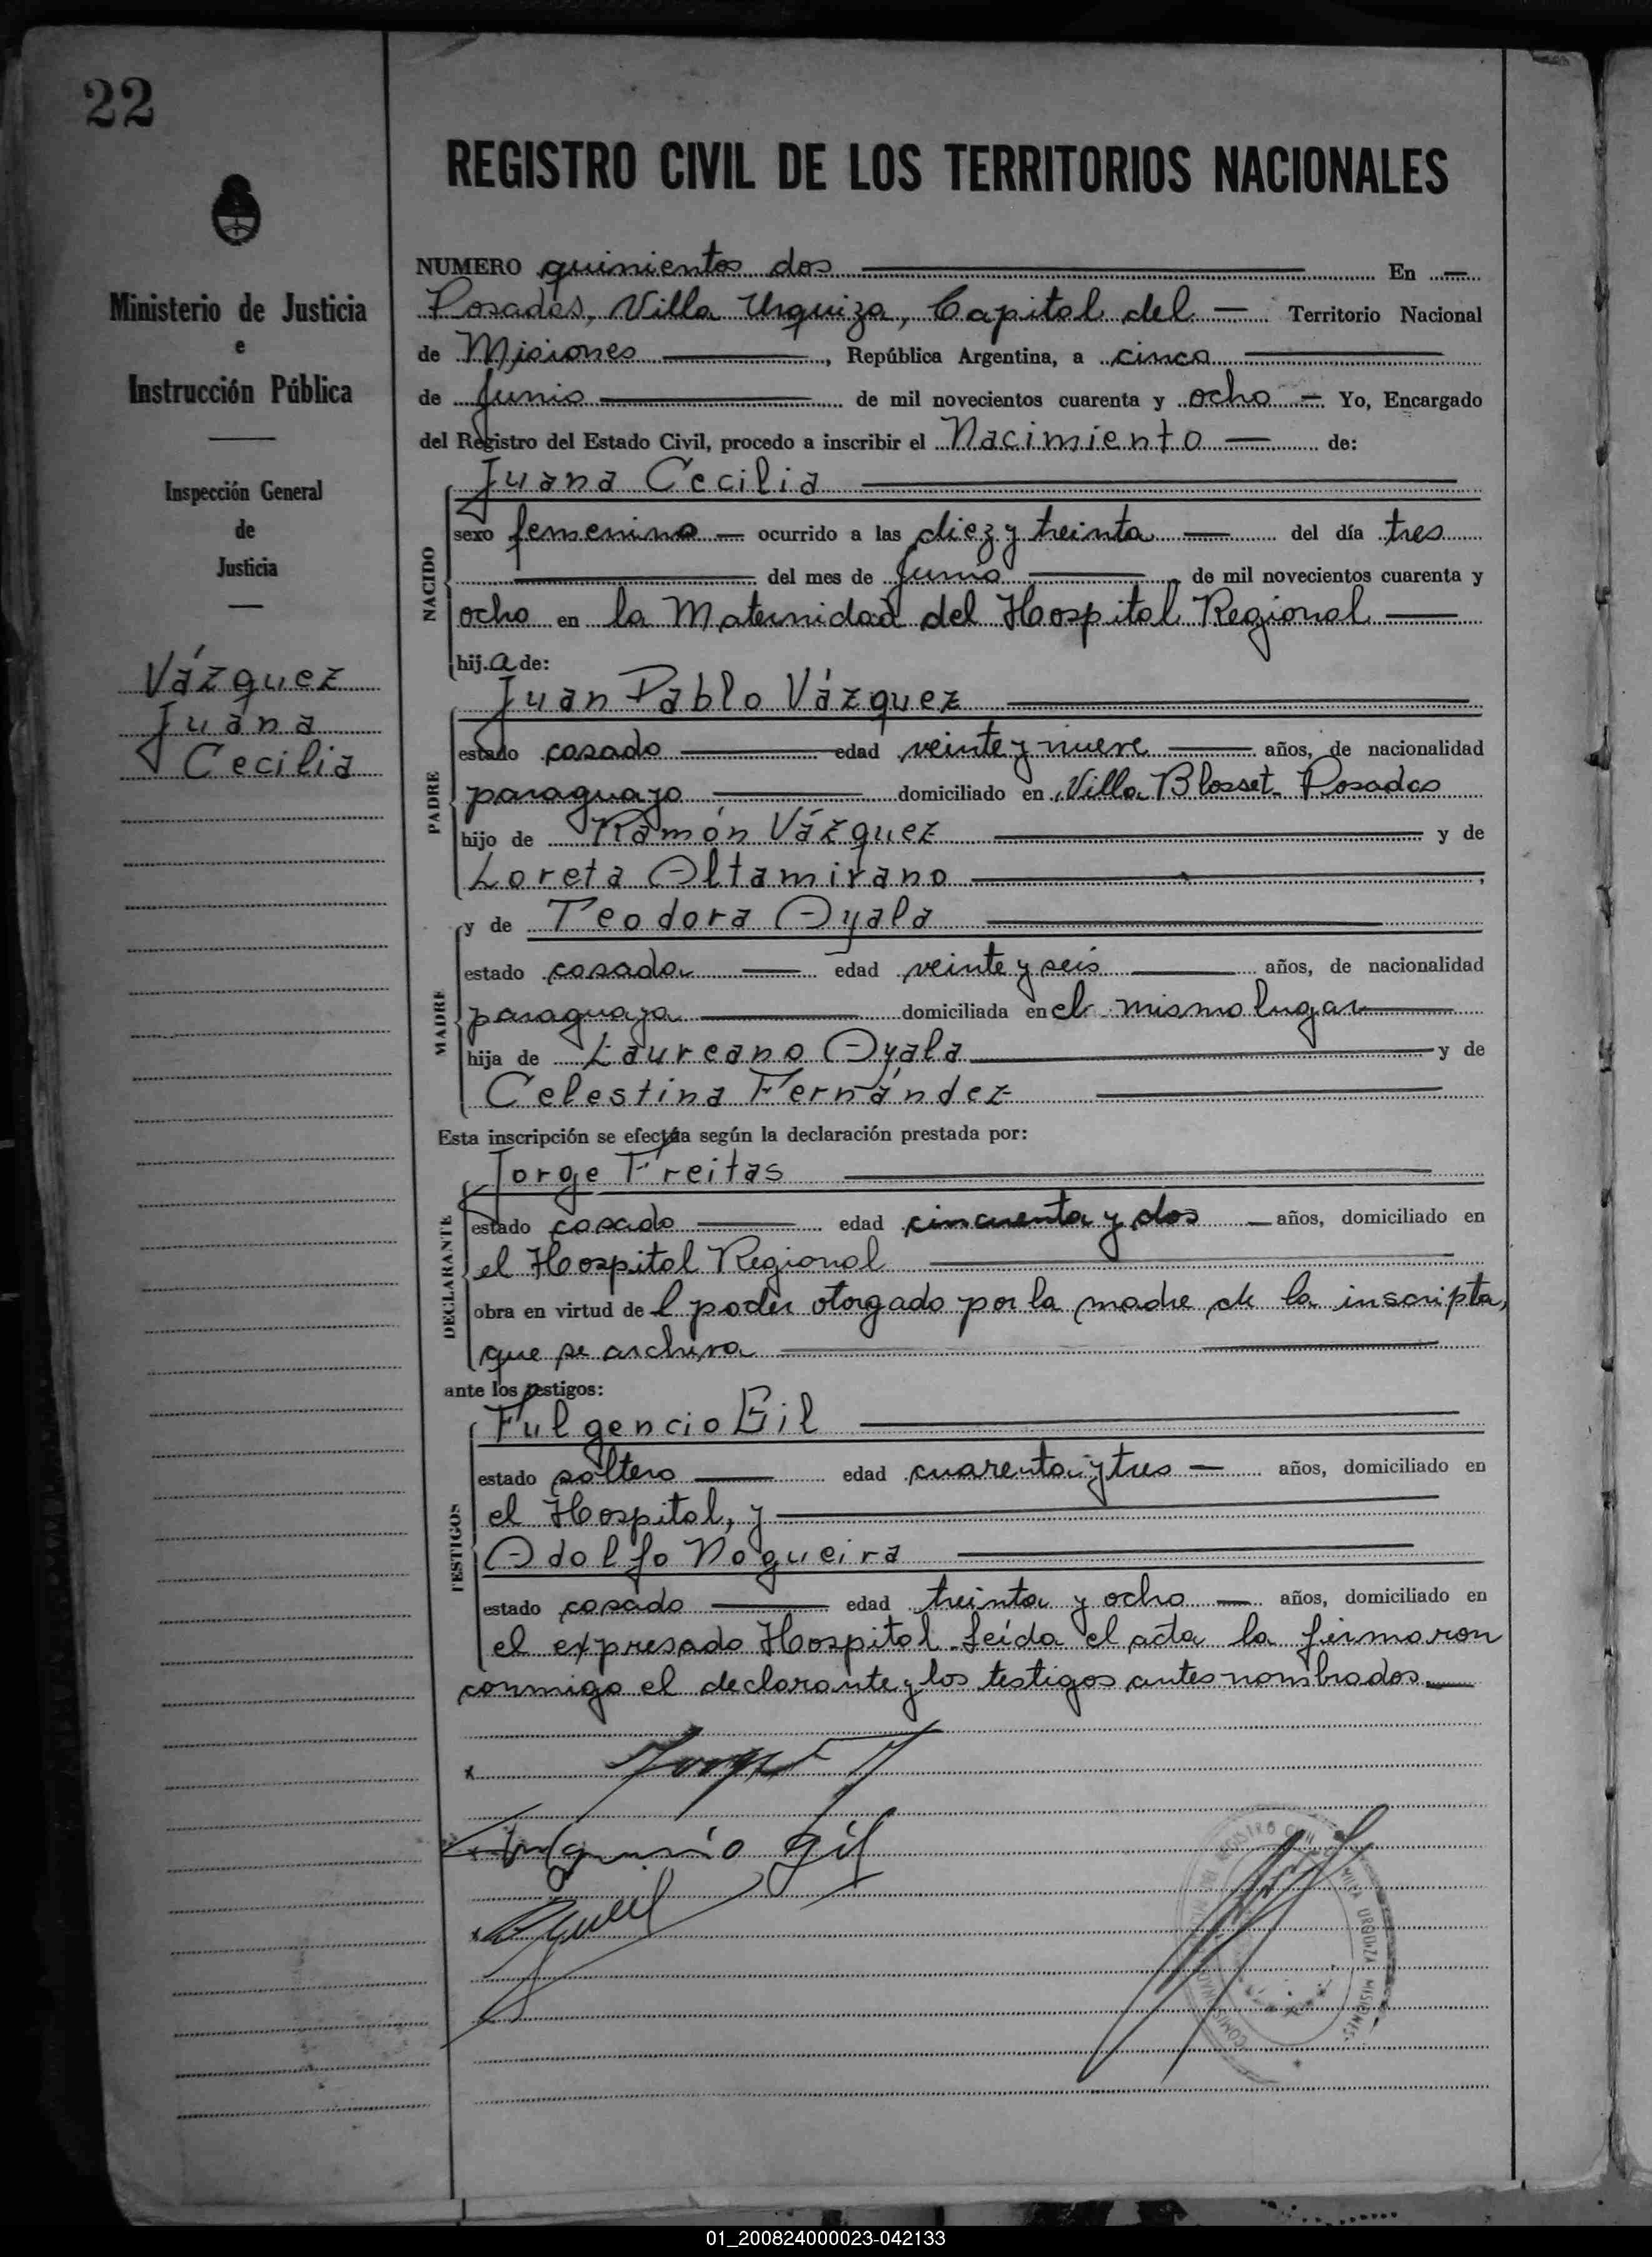 22
REGISTRO CIVIL DE LOS TERRITORIOS NACIONALES
Ministerio de Justicia
e
Instrucción Pública
Inspección General
de
Justicia
Vázquez
Juana
Cecilia
NUMERO quinientos dos En
Posadas, Villa Urquiza, Capital del Territorio Nacional
de Misiones, República Argentina, a cinco
de Junio de mil novecientos cuarenta y ocho Yo, Encargado
del Registro del Estado Civil, procedo a inscribir el Nacimiento de:
NACIDO
Juana Cecilia
sexo femenino ocurrido a las diez y treinta del día tres
del mes de Junio de mil novecientos cuarenta y
ocho en la Maternidad del Hospital Regional
hija de:
PADRE
Juan Pablo Vázquez
estado casado edad veinte y nueve años, de nacionalidad
paraguayo domiciliado en Villa Blosset - Posadas
hijo de Ramón Vázquez y de
Loreta Altamirano,
MADRE
y de Teodora Ayala
estado casada edad veinte y seis años, de nacionalidad
paraguaya domiciliada en el mismo lugar
hija de Laureano Ayala y de
Celestina Fernández
Esta inscripción se efectúa según la declaración prestada por:
DECLARANTE
Jorge Freitas
estado casado edad cincuenta y dos años, domiciliado en
el Hospital Regional
obra en virtud del poder otorgado por la madre de la inscripta,
que se archiva
ante los testigos:
TESTIGOS
Fulgencio Gil
estado soltero edad cuarenta y tres años, domiciliado en
el Hospital, y
Adolfo Nogueira
estado casado edad treinta y ocho años, domiciliado en
el expresado Hospital. Leída el acta la firmaron
conmigo el declarante y los testigos antes nombrados.
Fulgencio Gil
REGISTRO CIVIL
VILLA URQUIZA MISIONES
01_200824000023-042133